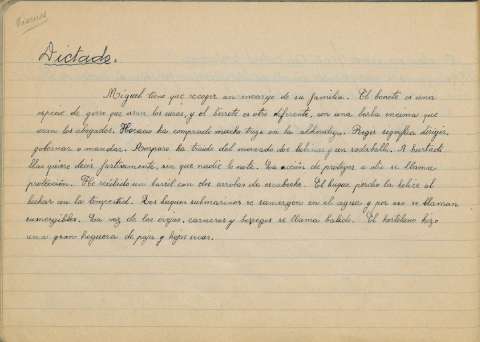 Viernes
Dictado.
Miguel tiene que recoger un encargo de su familia. El bonete es una
especie de gorro que usan los curas, y el birrete es otro diferente, con una borla encima que
usan los abogados. Horacio ha comprado mucho trigo en la alhóndiga. Regir significa dirigir,
gobernar o mandar. Amparo ha traído del mercado dos lubinas y un rodaballo. A hurtadi-
llas quiere decir furtivamente, sin que nadie lo note. La acción de proteger a otro se llama
protección. He recibido un barril con dos arrobas de escabeche. El buque perdió la hélice al
luchar con la tempestad. Los buques submarinos se sumergen en el agua y por eso se llaman
sumergibles. La voz de las ovejas, carneros y borregos se llama balido. El hortelano hizo
una gran hoguera de paja y hojas secas.